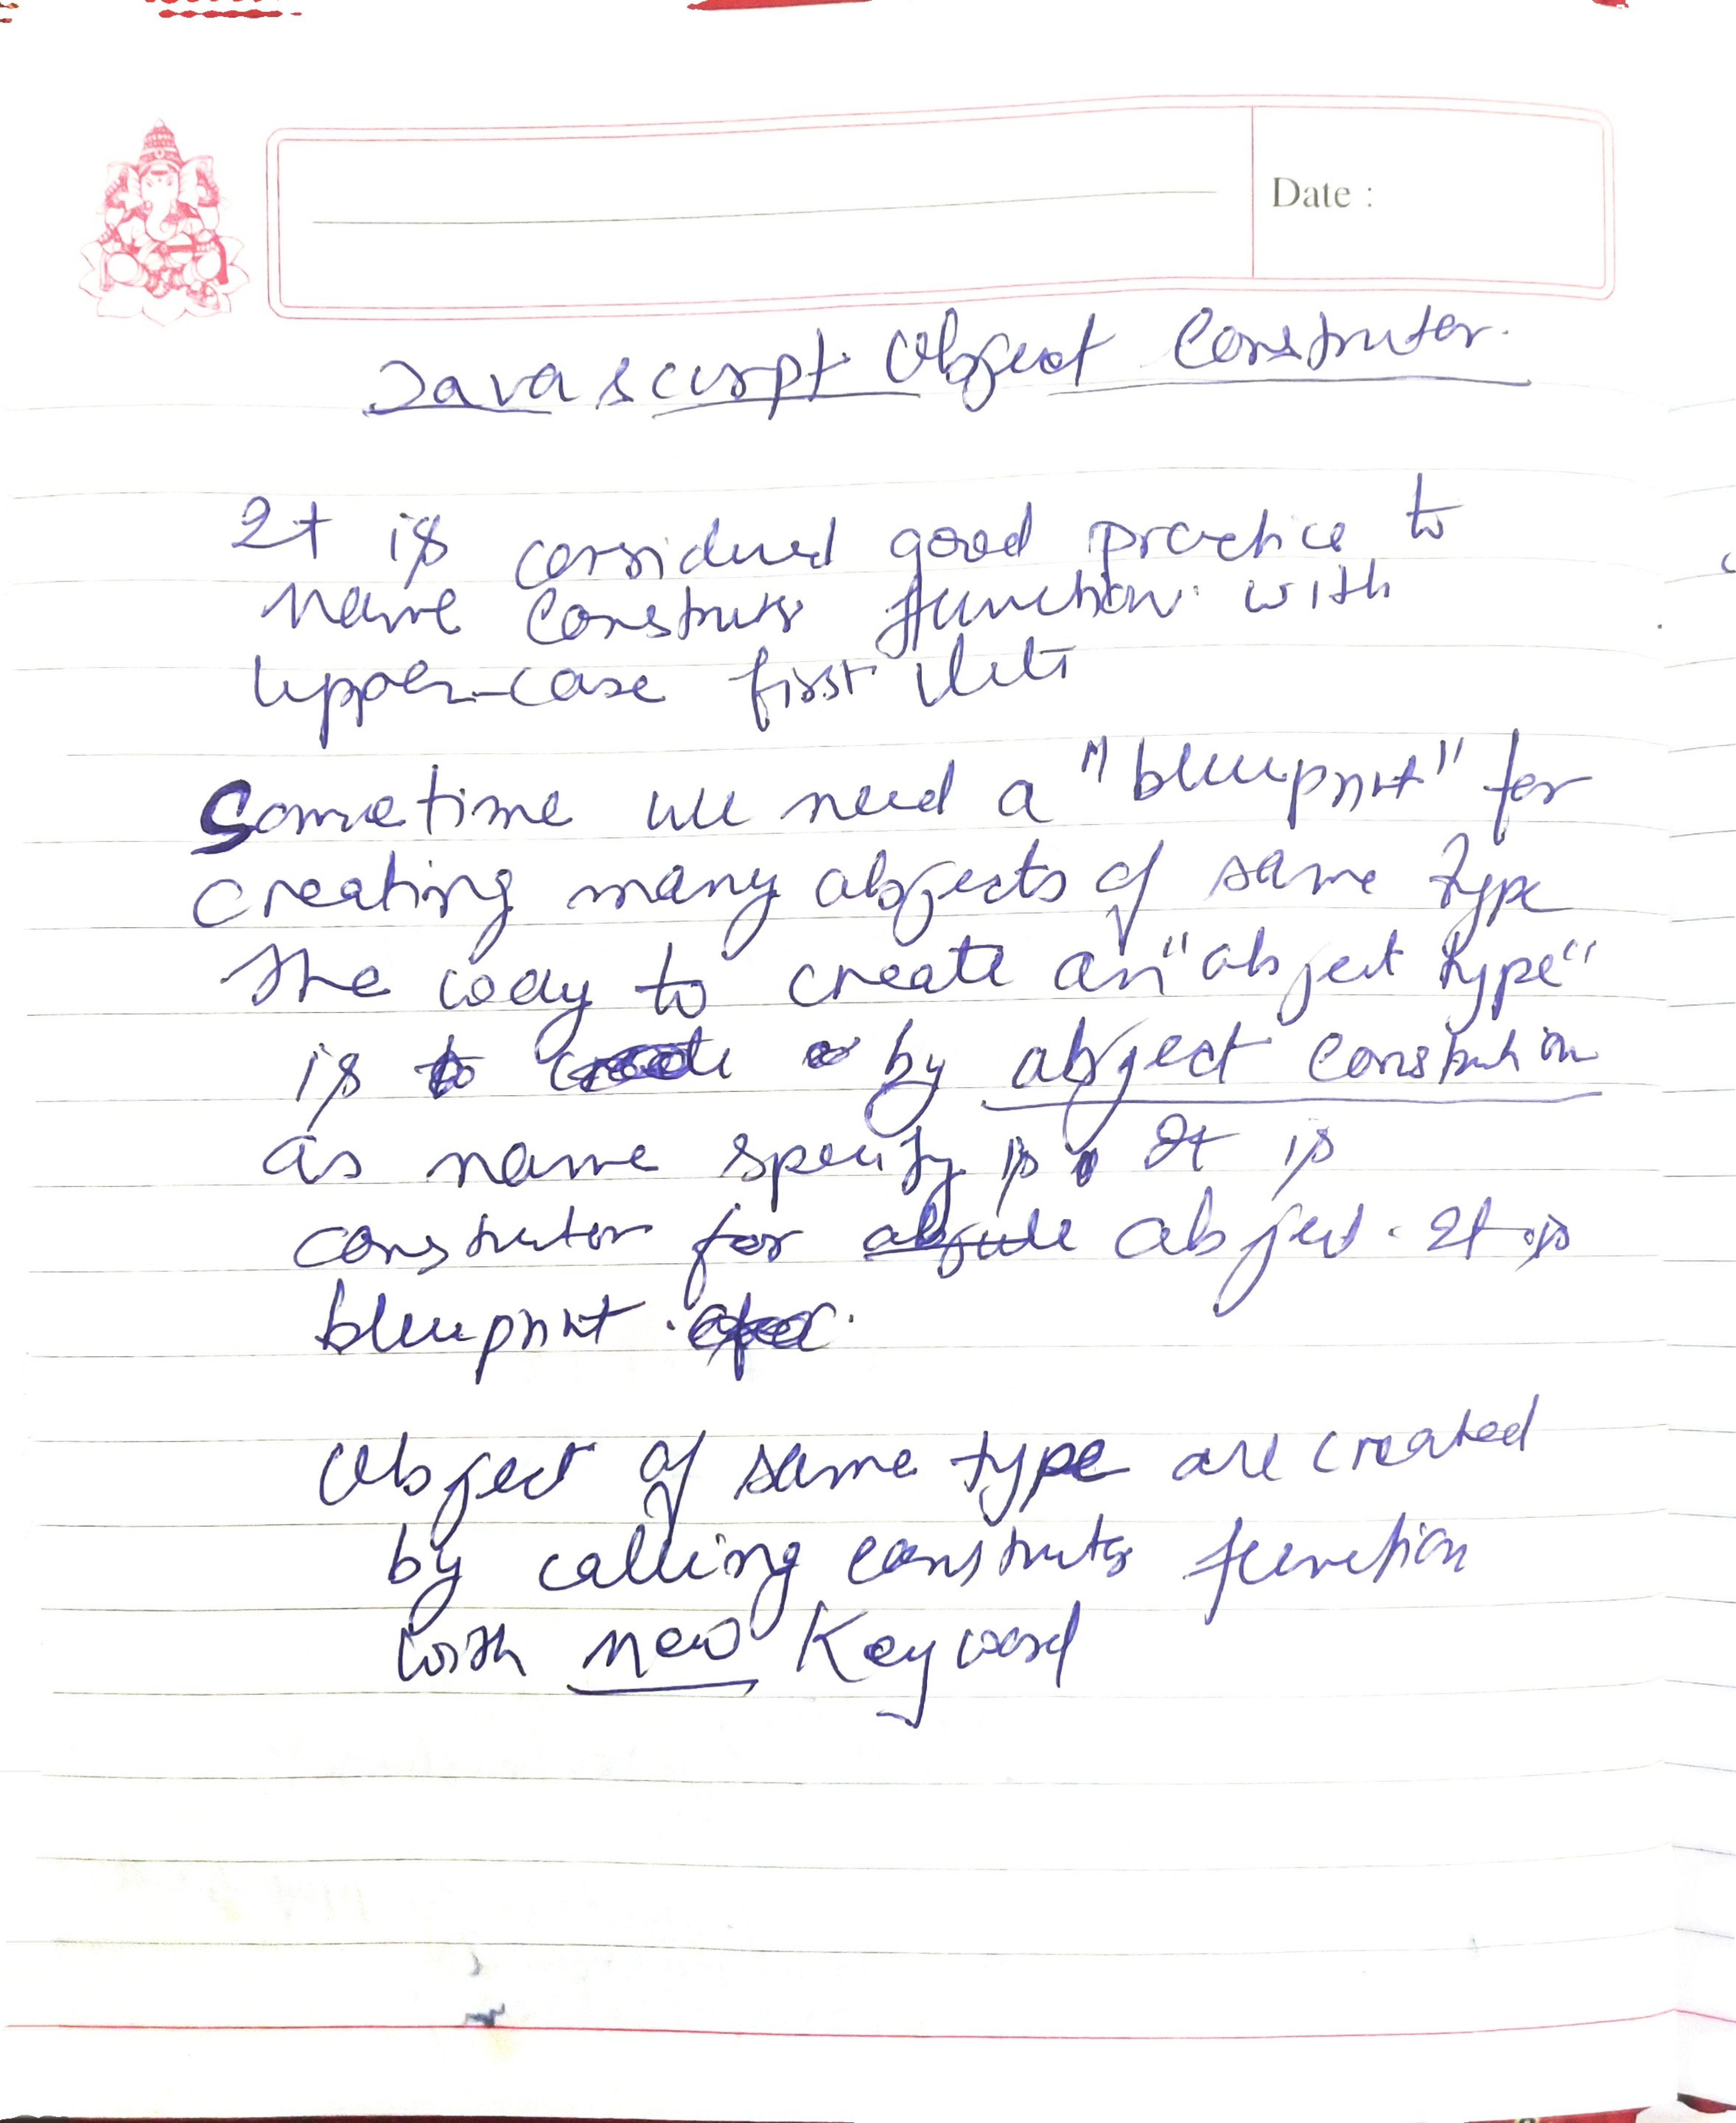 Date :
Javascript Object Construtor.
It is considered good practice to
name Construtor function with
upper-case first
Sometime we need a "blueprint" for
creating many objects of same type
The way to create an "object type"
is by object
as name specify is It is
construtor for object. It is
blueprint.
Object of same type are created
by calling construtor function
with new Keyword